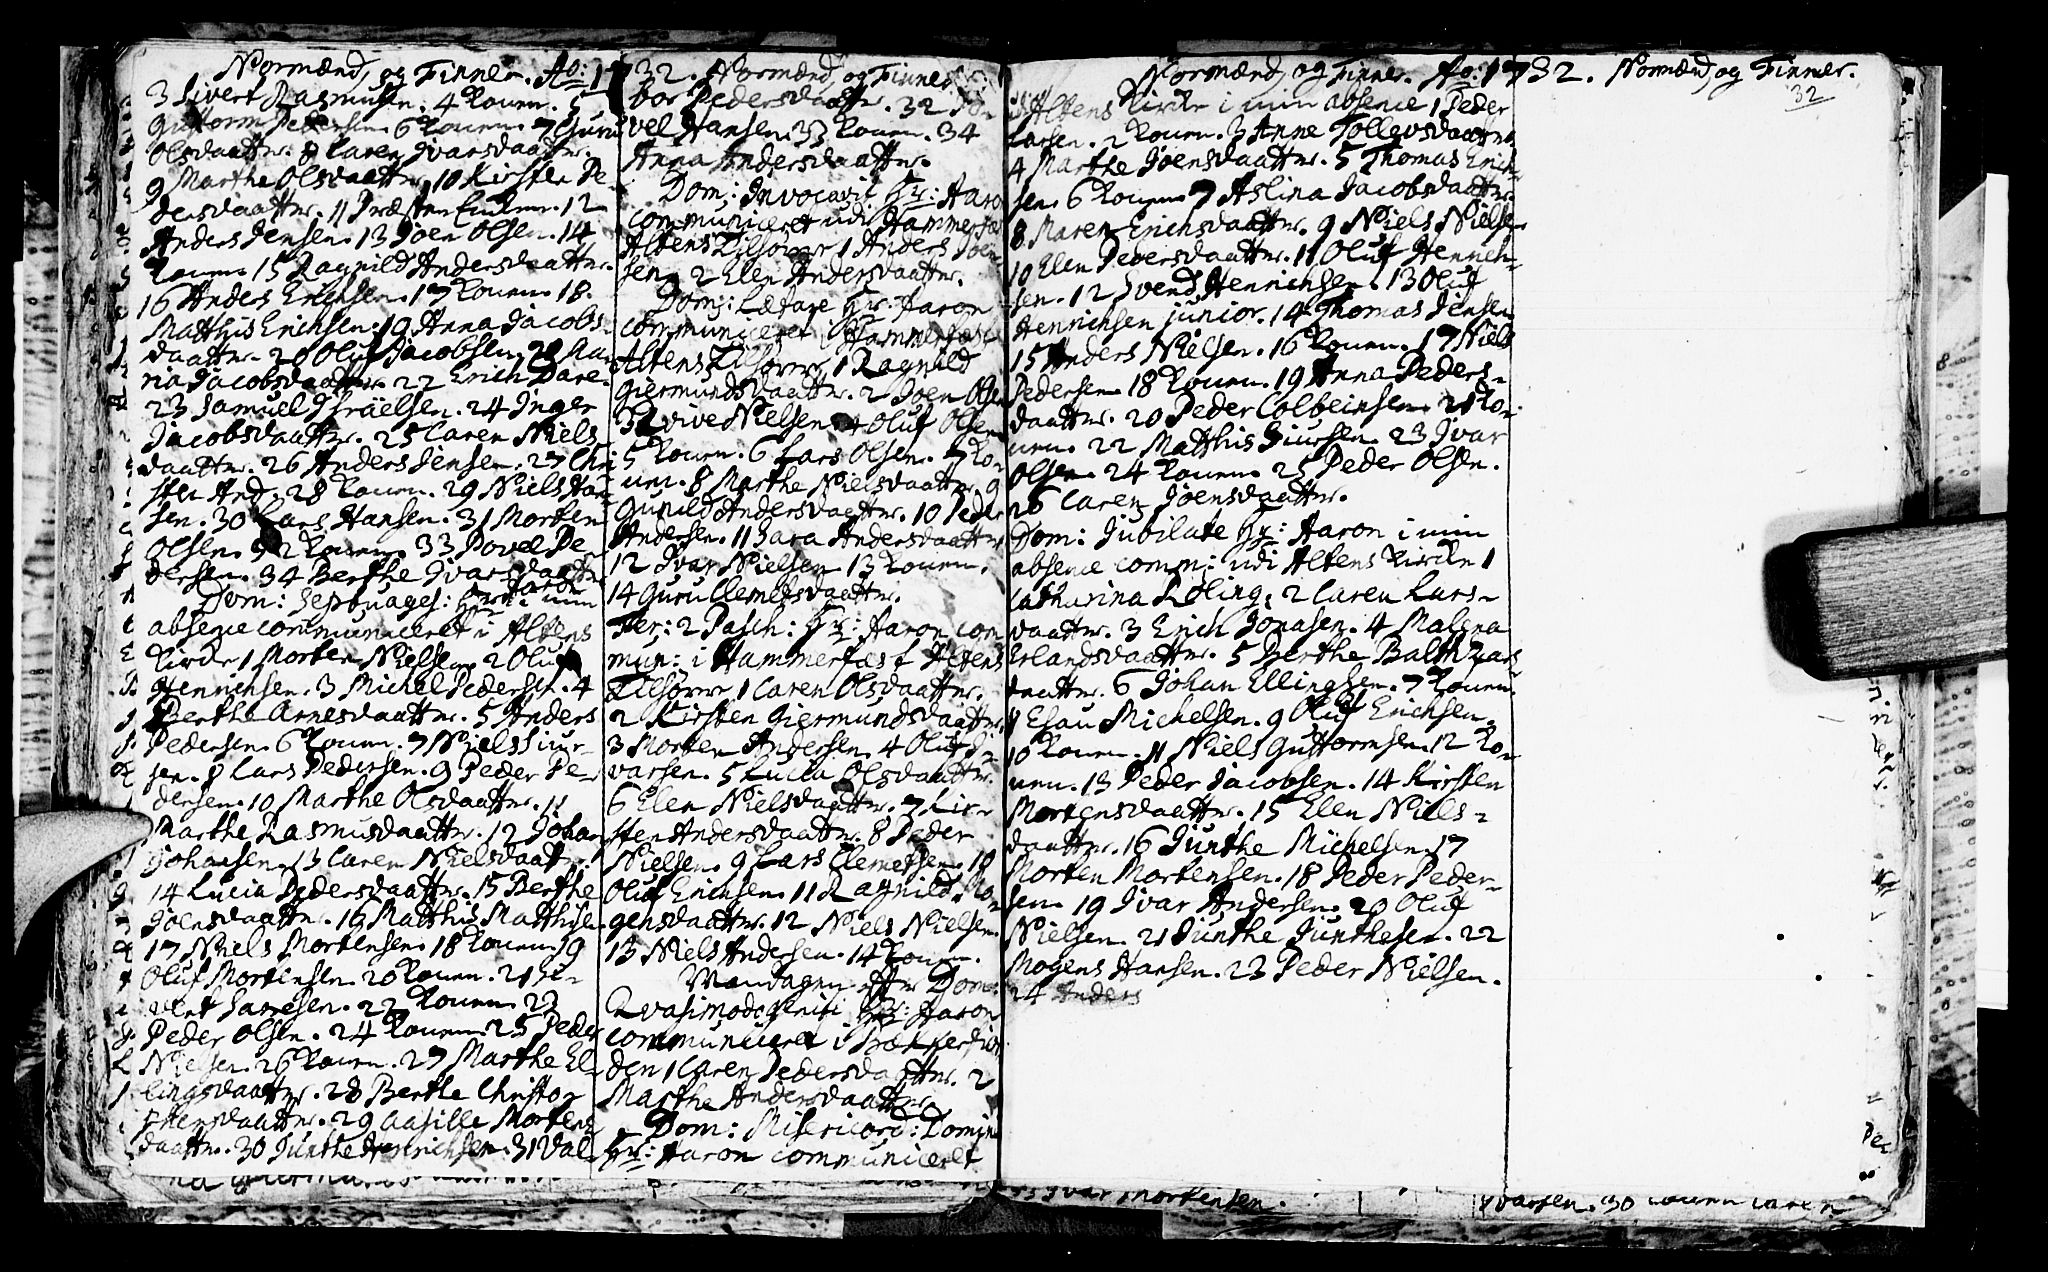 Normænd, og Finner. Ao: 1732. Normænd, og Finner.
3 Sivert Rasmusen. 4 Konen. 5
Guttorm Pedersen. 6 Konen. 7 Guru
Olsdaatter. 8 Caren Ivarsdaatter.
9 Marthe Olsdaatter. 10 Kirsten Pe-
dersdaatter. 11 Præsten Enken. 12
Anders Jensen. 13 Joen Olsen. 14
Konen. 15 Ragnild Andersdaatter.
16 Anders Erichsen. 17 Konen. 18
Matthis Erichsen. 19 Anna Jacobs-
daatter. 20 Oluf Jacobsen. 21 Ma-
ria Jacobsdaatter. 22 Erich Dare.
23 Samuel Israelsen. 24 Inger
Jacobsdaatter. 25 Caren Niels
daatter. 26 Anders Jensen. 27 Chri
sten And. 28 Konen. 29 Niels Han-
sen. 30 Lars Hansen. 31 Morten
Olsen. 32 Konen. 33 Povel Pe
dersen. 34 Berthe Ivarsdaatter
Dom: Septuages: i min
absence communiceret i Altens
Kircke 1 Morten Nielsen 2 Oluf
Henrichsen. 3 Michel Pedersen. 4
Berthe Arnesdaatter. 5 Anders
Pedersen. 6 Konen. 7 Niels Siur-
sen. 8 Lars Pedersen. 9 Peder Pe-
dersen. 10 Marthe Olsdaatter. 11
Marthe Rasmusdaatter. 12 Johan
Johansen. 13 Caren Nielsdaatter.
14 Lucia Pedersdaatter. 15 Berthe
Joensdaatter. 16 Matthis Matthisen
17 Niels Mortensen. 18 Konen. 19
Oluf Mortensen. 20 Konen. 21 Si-
vert Saresen. 22 Konen. 23
Peder Olsen. 24 Konen. 25 Peder
Nielsen. 26 Konen. 27 Marthe El-
lingsdaatter. 28 Berthe Christop
hersdaatter. 29 Aasille Mortens
daatter. 30 Junthe Henrichsen. 31 Val-
bor Pedersdaatter. 32 Po-
vel Hansen. 33 Konen. 34
Anna Andersdaatter.
Dom: Invocavit Hr: Aaron
communiceret udi Hammerfæst
Altens Tilhører 1 Anders Joen-
sen. 2 Elen Andersdaatter.
Dom: Lætare Hr: Aaron
communiceret i Hammerfæst
Altens Tilhører 1 Ragnild
Giermundsdaatter. 2 Joen Olsen
3 Qvive Nielsen 4 Oluf Olsen
5 Konen. 6 Lars Olsen. 7 Ko-
nen. 8 Marthe Nielsdaatter. 9
Gunild Andersdaatter. 10 Peder
Andersen. 11 Sara Andersdaatter
12 Ivar Nielsen 13 Konen.
14 Guru Clemetsdaatter.
Fer: 2 Pasch: Hr: Aaron com
mun: i Hammerfæst Altens
Tilhører 1 Caren Olsdaatter.
2 Kirsten Giermundsdaatter.
3 Morten Andersen 4 Oluf I-
varsen. 5 Lucia Olsdaatter.
6 Elen Nielsdaatter. 7 Kir-
sten Andersdaatter. 8 Peder
Nielsen. 9 Lars Clemetsen. 10
Oluf Erichsen. 11 Ragnild Mo-
gensdaatter. 12 Niels Nielsen.
13 Niels Andersen. 14 Konen.
Mandagen efter Dom:
Qvasimodogeniti Hr: Aaron
communiceret i
den 1 Caren Pedersdaatter. 2
Marthe Andersdaatter.
Dom: Misericord: Domin
Hr: Aaron communiceret
Normænd, og Finner. Ao: 1732. Normænd, og Finner.
32
Altens Kircke i min absence 1 Peder
Larsen. 2 Konen. 3 Anne Tollevsdaatter
4 Marthe Joensdaatter. 5 Thomas Erich-
sen. 6 Konen. 7 Aslina Jacobsdaatter.
8 Maren Erichsdaatter. 9 Niels Nielsen
10 Elen Pedersdaatter. 11 Oluf Henrich-
sen. 12 Svend Henrichsen. 13 Oluf
Henrichsen junior. 14 Thomas Jensen
15 Anders Nielsen. 16 Konen. 17 Niels
Pedersen. 18 Konen. 19 Anna Peders-
daatter. 20 Peder Colbeinsen. 21 Ko-
nen. 22 Matthis Siursen. 23 Ivar
Olsen. 24 Konen. 25 Peder Olsen.
26 Caren Joensdaatter.
Dom: Jubilate Hr: Aaron i min
absence comm: udi Altens Kircke 1
Catharina Röling. 2 Caren Lars-
daatter. 3 Erich Jonasen. 4 Malena
Erlandsdaatter. 5 Berthe Balthzars
daatter. 6 Johan Ellingsen. 7 Konen.
8 Esau Michelsen. 9 Oluf Erichsen.
10 Konen. 11 Niels Guttormsen. 12 Ko-
nen. 13 Peder Jacobsen. 14 Kirsten
Mortensdaatter. 15 Elen Niels-
daatter. 16 Junthe Michelsen. 17
Morten Mortensen. 18 Peder Peder-
sen. 19 Ivar Andersen. 20 Oluf
Nielsen. 21 Junthe Junthesen. 22
Mogens Hansen. 23 Peder Nielsen.
24 Anders
Ivar Mortensen.
Ivarsen. 30